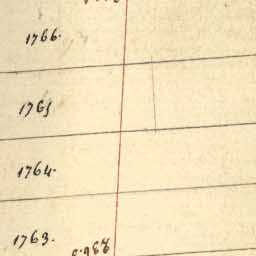 1766.
1765
1764.
1763.